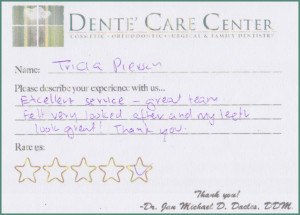 DENTE' CARE CENTER
COSMETIC - ORTHODONTIC - SURGICAL & FAMILY DENTISTRY
Name: Tricia
Please describe your experience with us...
Excellent service - great team
Felt very looked after and my teeth
look great! Thank you.
Rate us:
Thank you!
-Dr. Jan Michael D. Daclis, DDM.